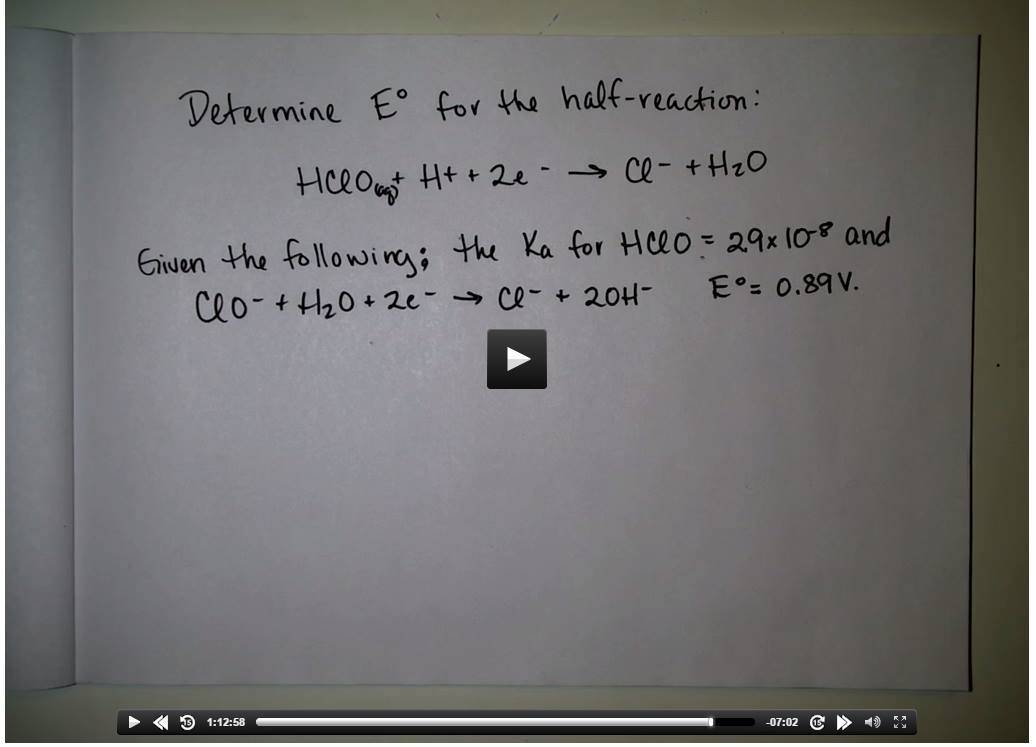 Determine E° for the half-reaction:
HClO(aq) + H+ + 2e- → Cl- + H2O
Given the following; the Ka for HClO = 29x10-8 and
ClO- + H2O + 2e- → Cl- + 2OH- E°= 0.89V.
15 1:12:58 -07:02 15